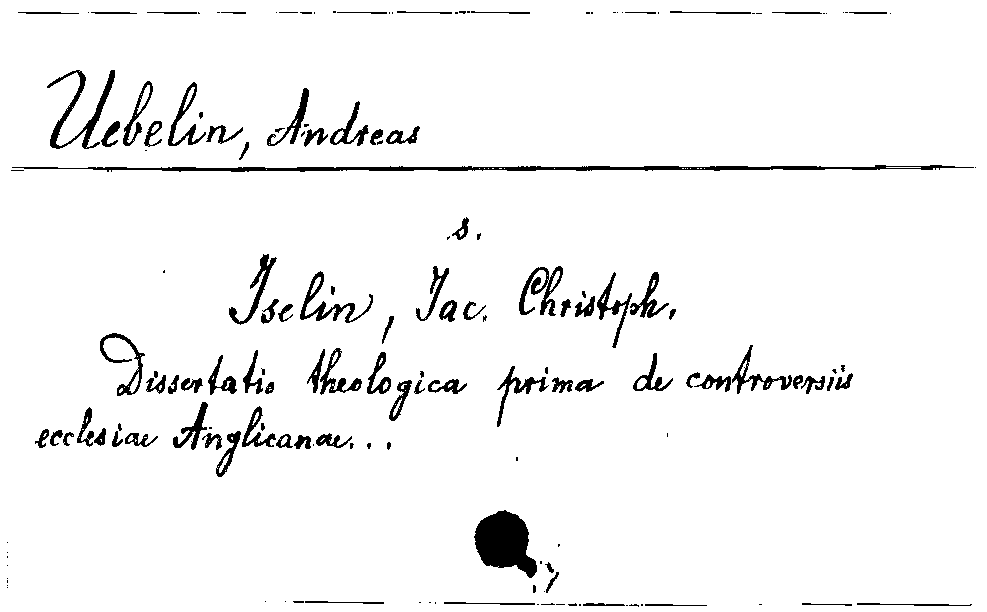 Uebelin, Andreas
s.
Iselin, Jac. Christoph.
Dissertatio theologica prima de controversiis
ecclesiae Anglicanae...